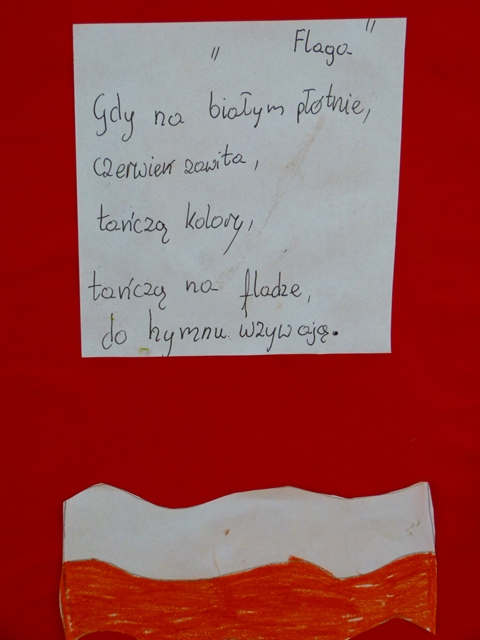 " Flaga "
Gdy na białym płótnie,
czerwień zawita,
tańczą kolory,
tańczą na fladze,
do hymnu wzywają.